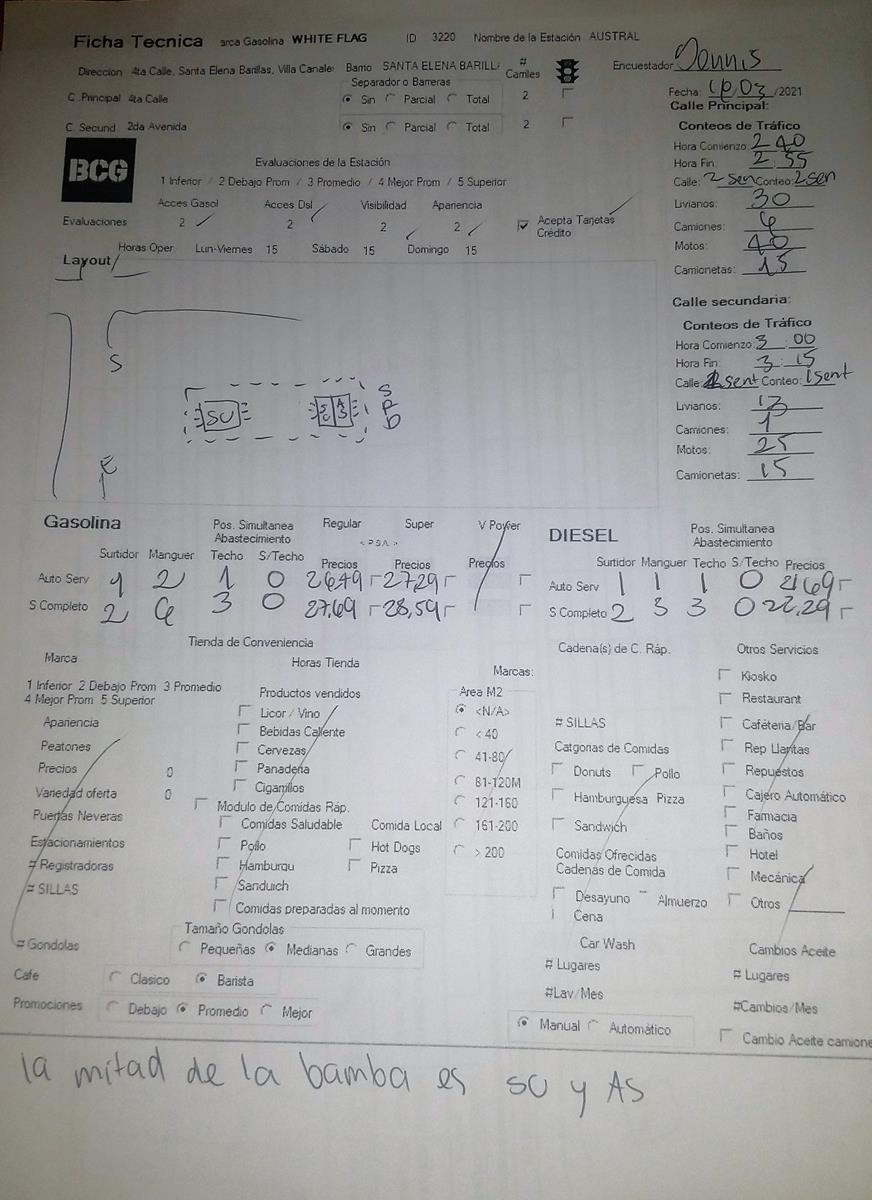 Ficha Tecnica arca Gasolina WHITE FLAG ID 3220 Nombre de la Estación AUSTRAL
Direccion 4ta Calle, Santa Elena Barillas, Villa Canale: Barrio SANTA ELENA BARILL # Carriles Encuestador Dennis
Separador o Barreras
C .Principal 4ta Calle Sin Parcial Total 2
C. Secund 2da Avenida Sin Parcial Total 2
Fecha: /03 /2021
BCG
Evaluaciones de la Estación
1 Inferior / 2 Debajo Prom / 3 Promedio / 4 Mejor Prom / 5 Superior
Acces Gasol Acces Dsl Visibilidad Apariencia
Evaluaciones 2 2 2 2 Acepta Tarjetas Crédito
Horas Oper. Lun-Viernes 15 Sábado 15 Domingo 15
Layout
S
SC
SC AS
S
P
D
E
Calle Principal:
Conteos de Tráfico
Hora Comienzo: 2 40
Hora Fin: 2 : 55
Calle: 2 sen Conteo: 2 sen
Livianos: 30
Camiones:
Motos: 40
Camionetas: 15
Calle secundaria:
Conteos de Tráfico
Hora Comienzo: 3 : 00
Hora Fin: 3 : 15
Calle: sent Conteo: 1 sent
Livianos: 13
Camiones: 1
Motos: 25
Camionetas: 15
Gasolina Pos. Simultanea Abastecimiento Regular Super V Power
Surtidor Manguer Techo S/Techo Precios Precios Precios
Auto Serv 1 2 1 0 26,49 27,29
S Completo 2 3 0 27,69 28,59
DIESEL Pos. Simultanea Abastecimiento
Surtidor Manguer Techo S/Techo Precios
Auto Serv 1 1 1 0 21,69
S Completo 2 3 3 0 22,29
Tienda de Conveniencia
Marca Horas Tienda Marcas:
1 Inferior 2 Debajo Prom 3 Promedio
4 Mejor Prom 5 Superior
Apariencia
Peatones
Precios 0
Variedad oferta 0
Puertas Neveras
Estacionamientos
# Registradoras
# SILLAS
# Gondolas
Productos vendidos
Licor / Vino
Bebidas Caliente
Cervezas
Panaderia
Cigarrillos
Modulo de Comidas Ráp.
Comidas Saludable Comida Local
Pollo Hot Dogs
Hamburgu Pizza
Sanduich
Comidas preparadas al momento
Area M2
<N/A>
< 40
41-80
81-120M
121-160
161-200
> 200
Tamaño Gondolas
Pequeñas Medianas Grandes
Cafe Clasico Barista
Promociones Debajo Promedio Mejor
Cadena(s) de C. Ráp.
# SILLAS
Catgorias de Comidas
Donuts Pollo
Hamburguesa Pizza
Sandwich
Comidas Ofrecidas
Cadenas de Comida
Desayuno Almuerzo
Cena
Car Wash
# Lugares
#Lav/Mes
Manual Automático
Otros Servicios
Kiosko
Restaurant
Caféteria/Bar
Rep Llantas
Repuestos
Cajero Automático
Farmacia
Baños
Hotel
Mecánica
Otros
Cambios Aceite
# Lugares
#Cambios/Mes
Cambio Aceite camione
la mitad de la bamba es SC y AS